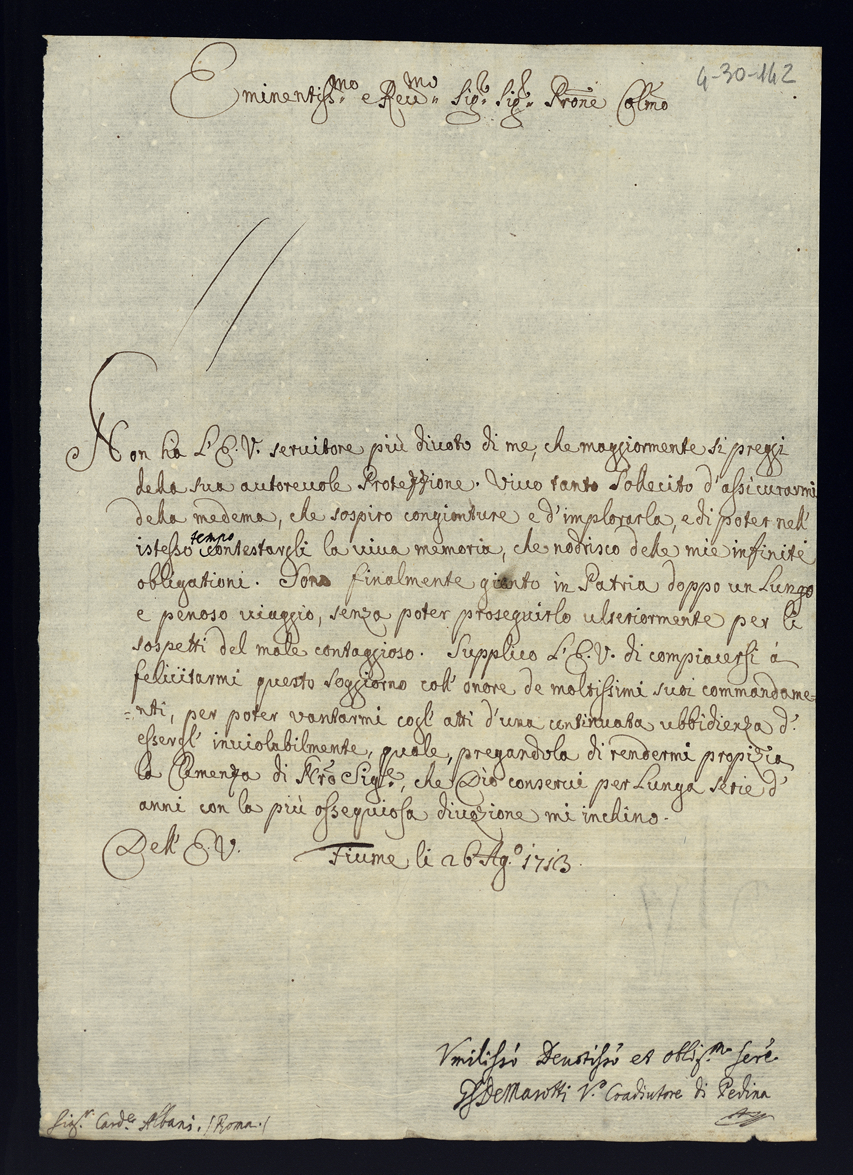 4-30-142
Eminentiss.mo e Reu.mo Sig.r Sig.r Prone Colmo
Non hà L'E.V. seruitore più diuoto di me, che maggiormente si preggi
della sua autoreuole Protezzione. Viuo tanto sollecito d'assicurarmi
della medema, che sospiro congionture e d'implorarla, e di poter nell'
istesso tempo contestargli la uiua memoria, che nodrisco delle mie infinite
obligationi. Sono finalmente gionto in Patria doppo un Lungo
e penoso uiaggio, senza poter proseguirlo ulteriormente per li
sospetti del male contaggioso. Supplico L'E.V. di compiacersi á
felicitarmi questo soggiorno coll' onore de moltissimi suoi commandame=
=nti, per poter vantarmi cogl' atti d'una continuata ubbidienza d'
essergl' inuiolabilmente, quale, pregandola di rendermi propizia
la Clemenza di Nrõ Sig.re, che Dio conserui per Lunga serie d'
anni con la più ossequiosa diuozione mi inchino.
Dell' E.V. Fiume li 26 Ag.o 1713
Vmilissõ Deuotissõ et oblig.mo Serẽ
DeMarotti V.o Coadiutore di Pedina
Sig.r Card.e Albani. /Roma./